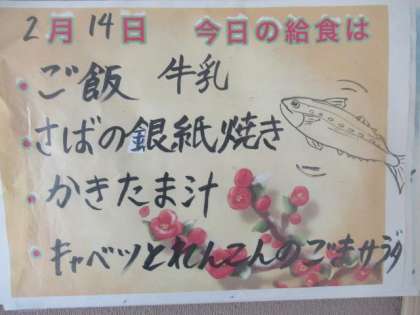 2月14日 今日の給食は
ご飯 牛乳
さばの銀紙焼き
かきたま汁
キャベツとれんこんのごまサラダ